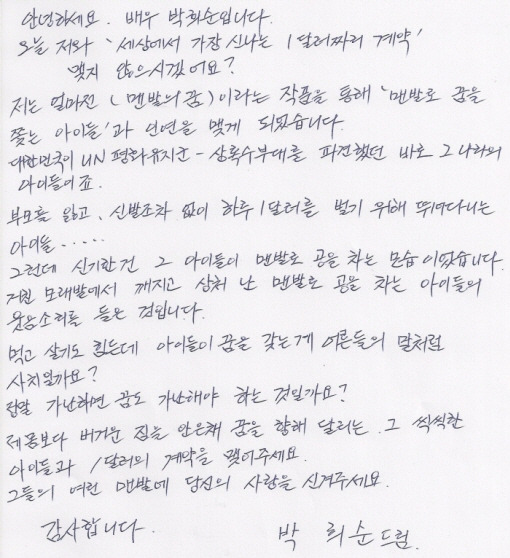 안녕하세요. 배우 박희순입니다.
오늘 저와 '세상에서 가장 신나는 1달러짜리 계약'
맺지 않으시겠어요?
저는 얼마전 (맨발의 꿈)이라는 작품을 통해 '맨발로 꿈을
쫓는 아이들'과 인연을 맺게 되었습니다.
대한민국이 UN 평화유지군-상록수부대를 파견했던 바로 그 나라의
아이들이죠.
부모를 잃고, 신발조차 없이 하루 1달러를 벌기 위해 뛰어다니는
아이들.....
그런데 신기한건 그 아이들이 맨발로 공을 차는 모습이었습니다.
거친 모래밭에서 깨지고 상처 난 맨발로 공을 차는 아이들의
웃음소리를 들은 것입니다.
먹고 살기도 힘든데 아이들이 꿈을 갖는게 어른들의 말처럼
사치일까요?
정말 가난하면 꿈도 가난해야 하는 것일까요?
제몸보다 버거운 짐을 안은채 꿈을 향해 달리는 그 씩씩한
아이들과 1달러의 계약을 맺어주세요.
그들의 여린 맨발에 당신의 사랑을 신겨주세요.
감사합니다. 박 희순드림.